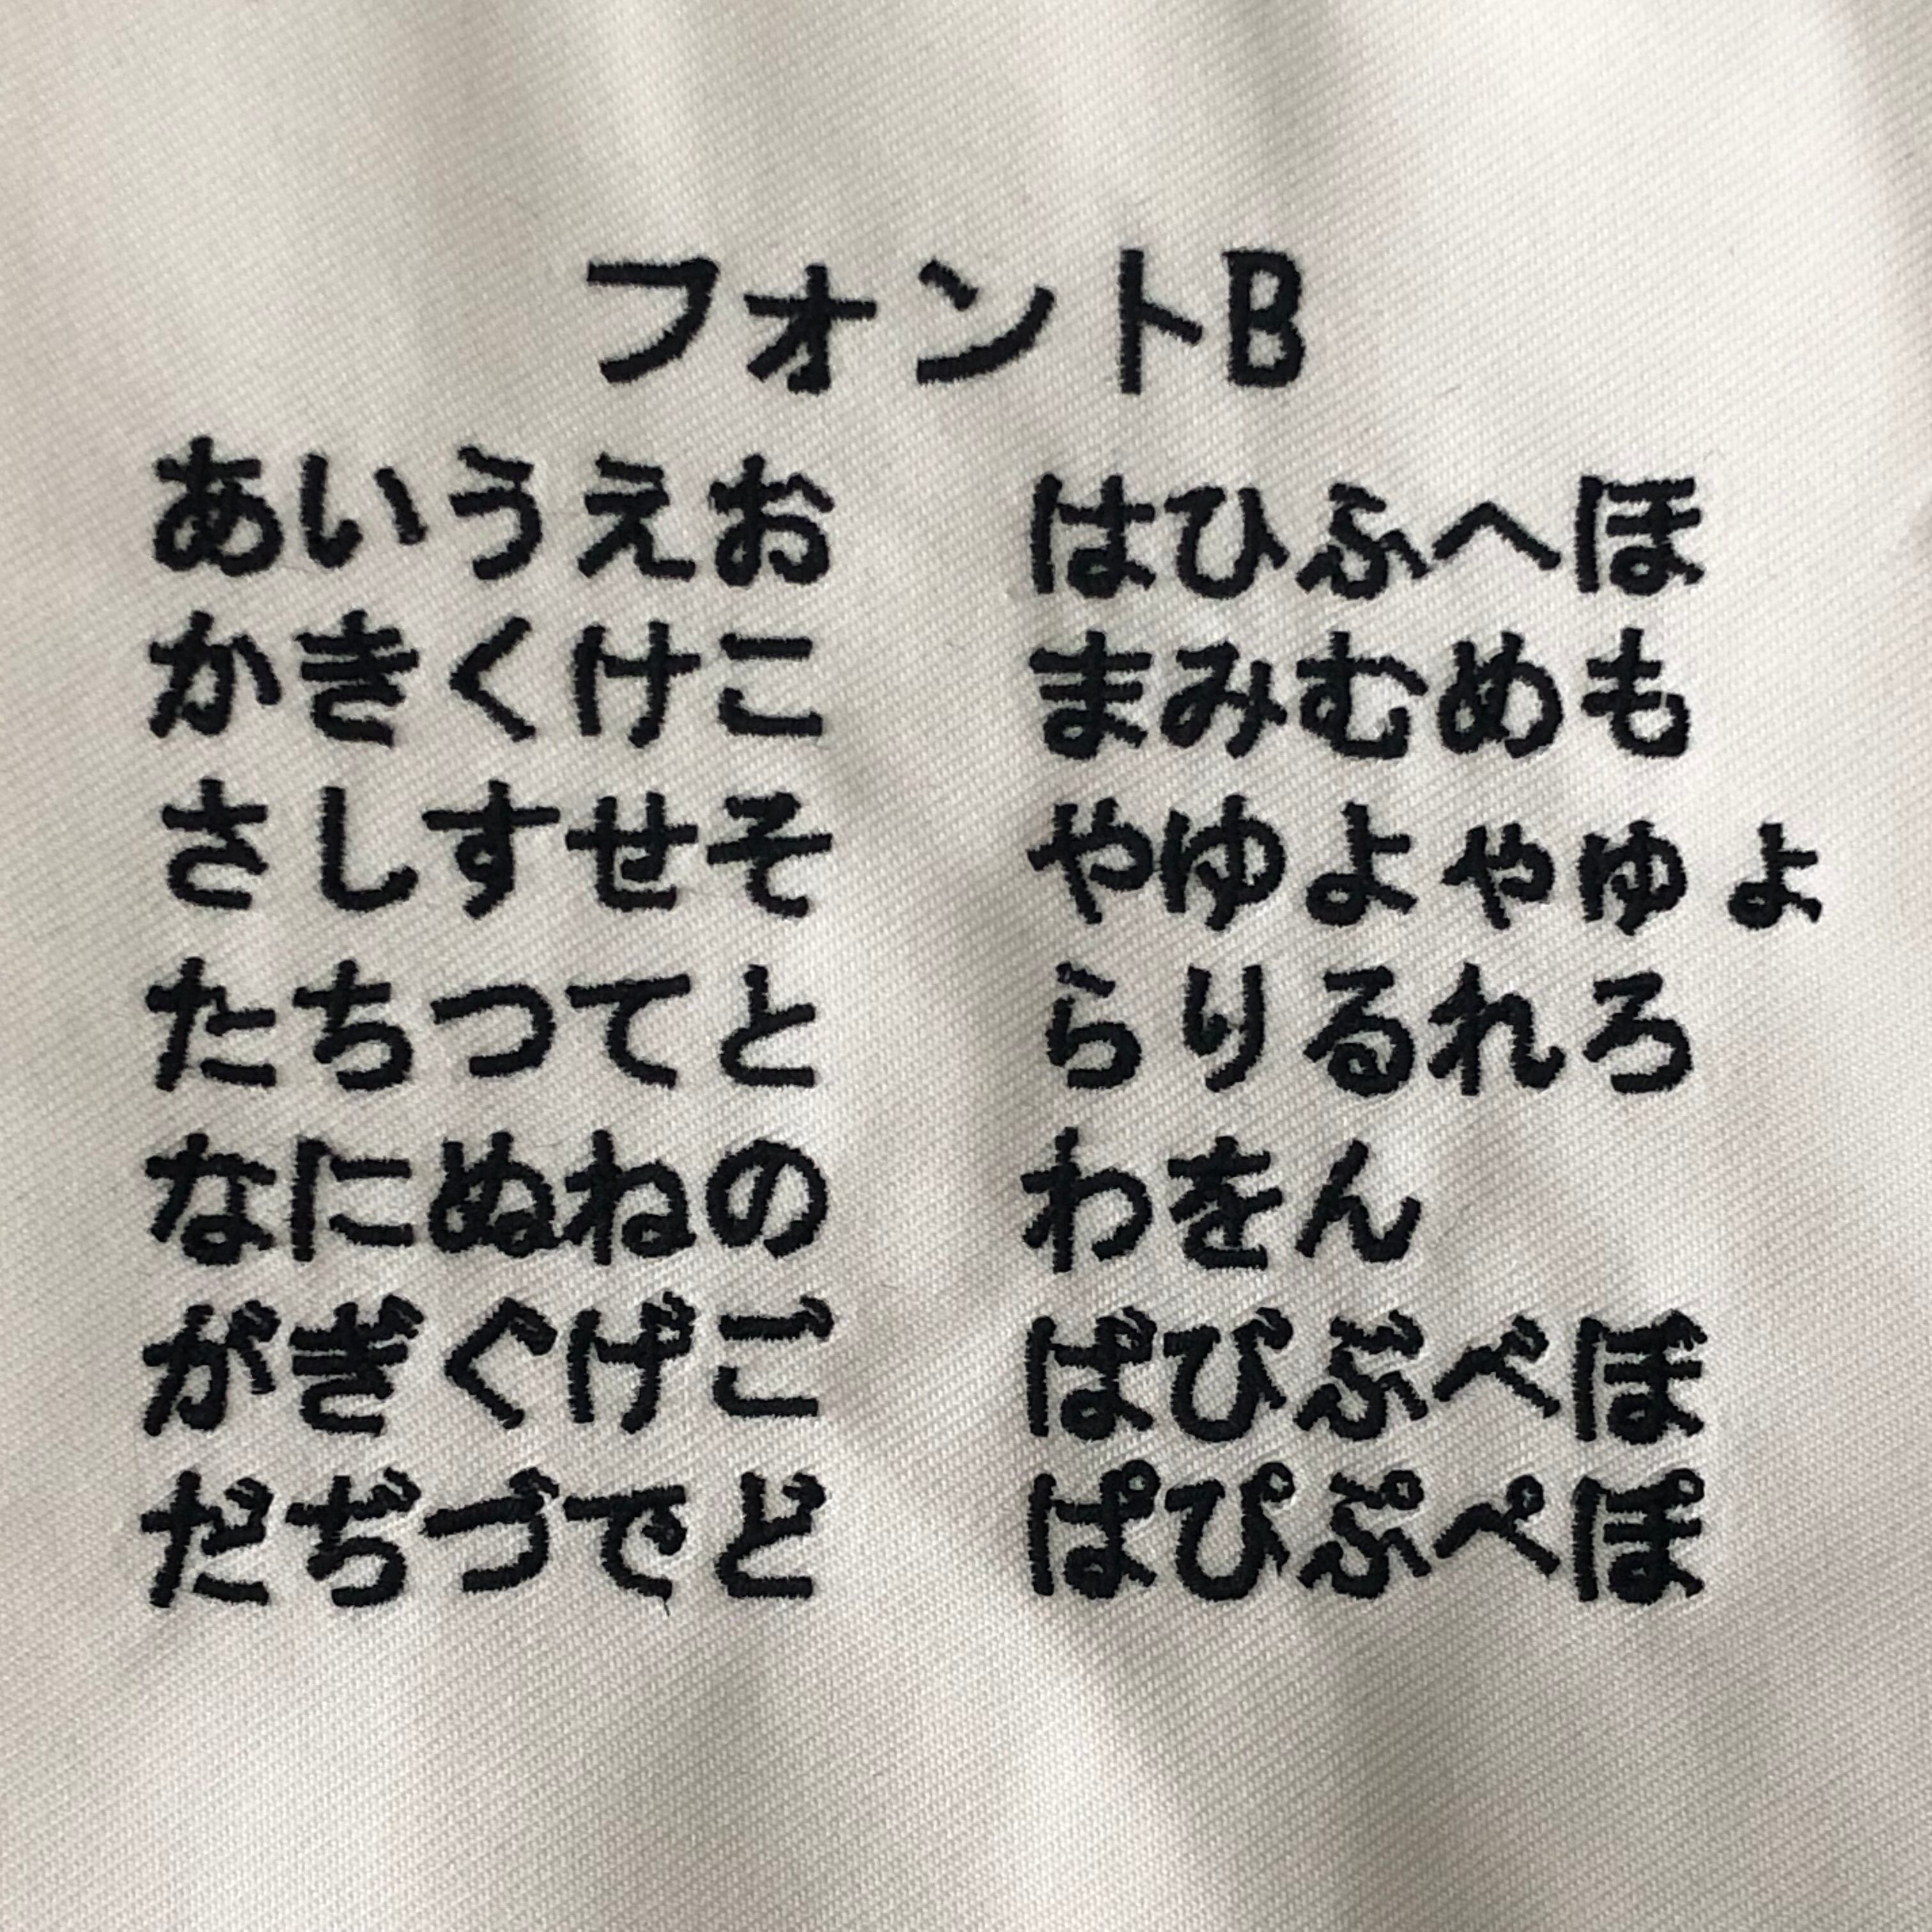 フォントB
あいうえお
かきくけこ
さしすせそ
たちつてと
なにぬねの
がぎぐげご
だぢづでど
はひふへほ
まみむめも
やゆよゃゅょ
らりるれろ
わをん
ばびぶべぼ
ぱぴぷぺぽ